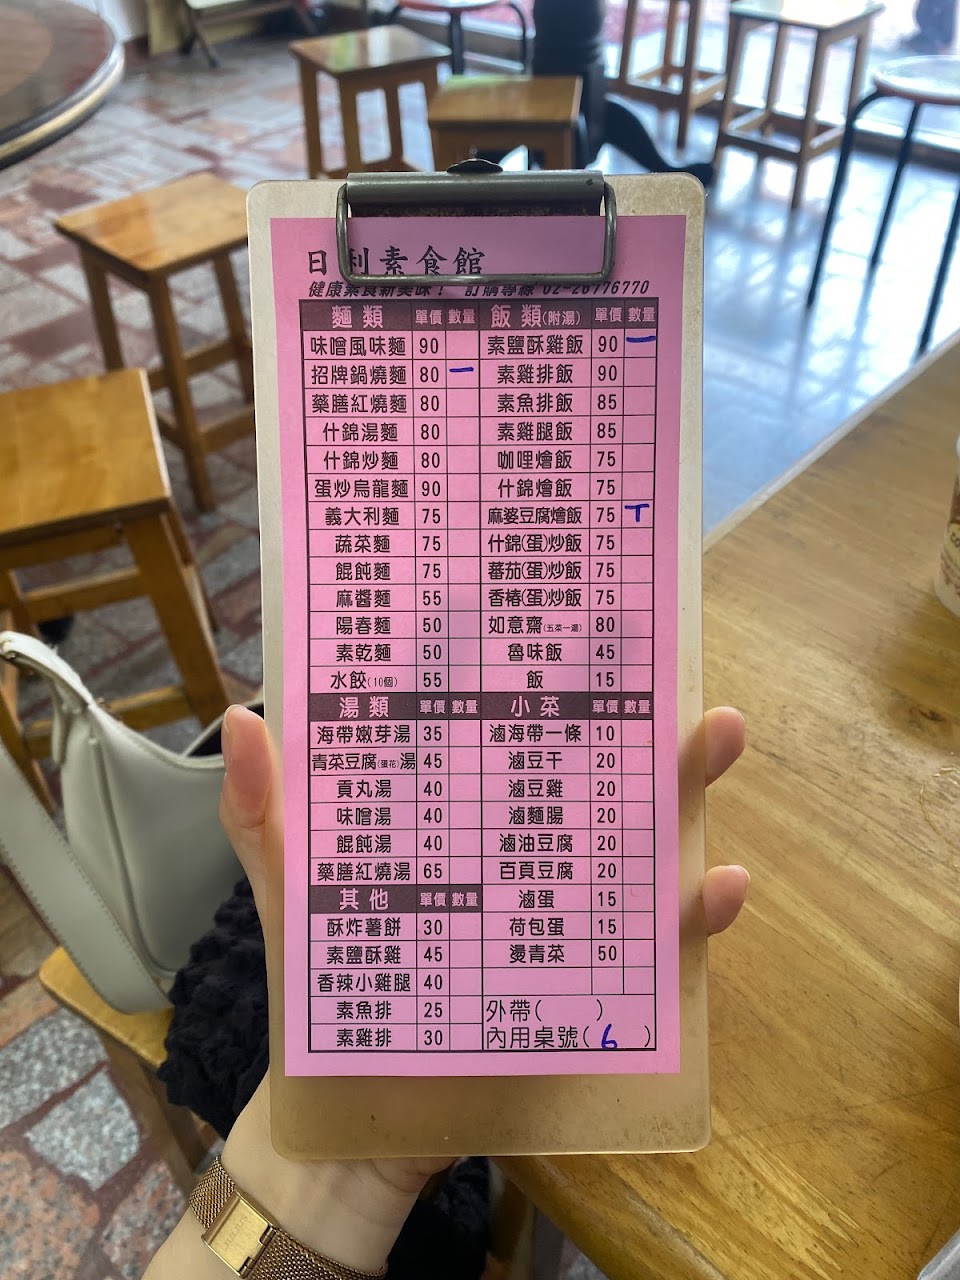 日利素食館
健康素食新美味！ 訂購專線 02-26776770
麵類 單價 數量 飯類(附湯) 單價 數量
味噌風味麵 90 素鹽酥雞飯 90 一
招牌鍋燒麵 80 一 素雞排飯 90
藥膳紅燒麵 80 素魚排飯 85
什錦湯麵 80 素雞腿飯 85
什錦炒麵 80 咖哩燴飯 75
蛋炒烏龍麵 90 什錦燴飯 75
義大利麵 75 麻婆豆腐燴飯 75 T
蔬菜麵 75 什錦(蛋)炒飯 75
餛飩麵 75 蕃茄(蛋)炒飯 75
麻醬麵 55 香椿(蛋)炒飯 75
陽春麵 50 如意齋(五菜一湯) 80
素乾麵 50 魯味飯 45
水餃(10個) 55 飯 15
湯類 單價 數量 小菜 單價 數量
海帶嫩芽湯 35 滷海帶一條 10
青菜豆腐(蛋花)湯 45 滷豆干 20
貢丸湯 40 滷豆雞 20
味噌湯 40 滷麵腸 20
餛飩湯 40 滷油豆腐 20
藥膳紅燒湯 65 百頁豆腐 20
其他 單價 數量 滷蛋 15
酥炸薯餅 30 荷包蛋 15
素鹽酥雞 45 燙青菜 50
香辣小雞腿 40
素魚排 25 外帶( )
素雞排 30 內用桌號( 6 )